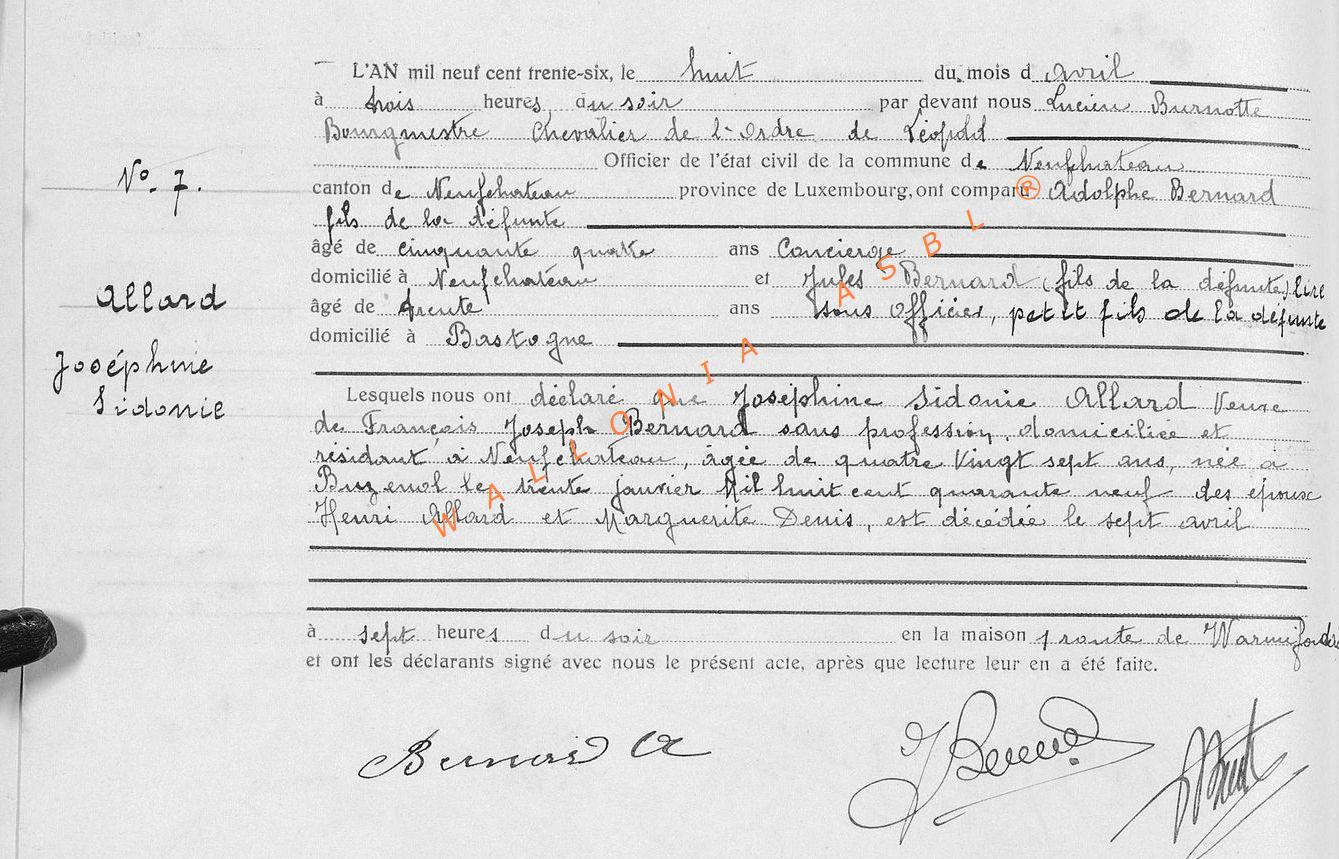 L'AN mil neuf cent trente-six, le huit du mois d avril
à trois heures du soir par devant nous Lucien Burnotte
Bourgmestre Chevalier de l'Ordre de Léopold
Officier de l'état civil de la commune de Neufchateau
N°. 7.
canton de Neufchateau province de Luxembourg, ont comparu Adolphe Bernard
fils de la défunte
âgé de cinquante quatre ans Concierge
domicilié à Neufchateau et Jules Bernard (fils de la défunte) lire
Allard
âgé de trente ans sous Officier, petit fils de la défunte
domicilié à Bastogne
Joséphine
Sidonie
Lesquels nous ont déclaré que Joséphine Sidonie Allard Veuve
de François Joseph Bernard sans profession, domiciliée et
résidant à Neufchateau, âgée de quatre Vingt sept ans, née à
Buzenol le trente janvier Mil huit cent quarante neuf des époux
Henri Allard et Marguerite Denis, est décédée le sept avril
à sept heures du soir en la maison 1 route de
et ont les déclarants signé avec nous le présent acte, après que lecture leur en a été faite.
Bernard A J Bernard
WALLONIA ASBL ®